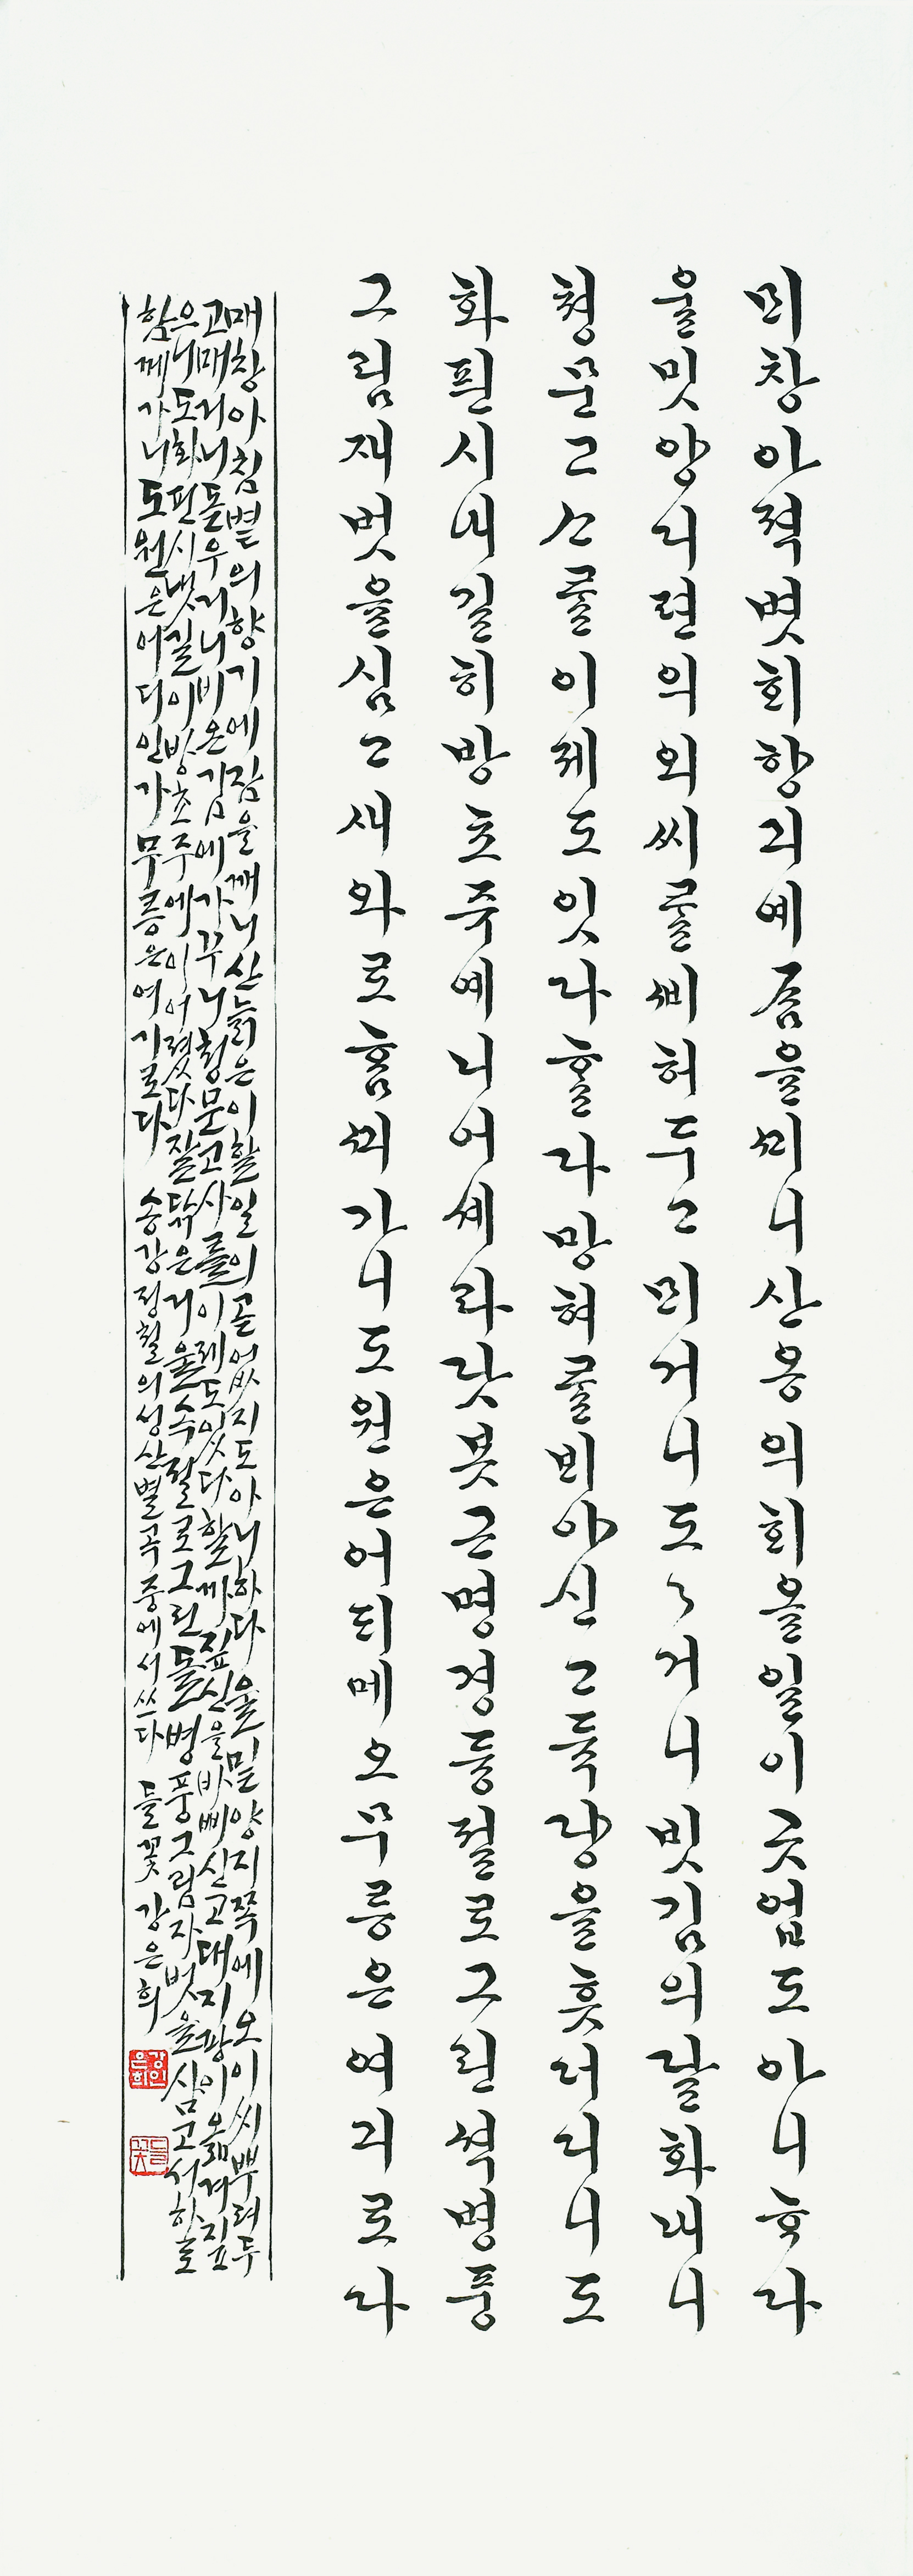 ᄆᆡ창아젹볏희향긔예ᄌᆞᆷ을ᄭᆡ니산옹의ᄒᆡ올일이긋업도아니ᄒᆞ다
울밋양디편의외씨ᄅᆞᆯᄲᅵ허두고ᄆᆡ거니도〻거니빗김의달화내니
청문고ᄉᆞᄅᆞᆯ이제도잇다ᄒᆞᆯ다망혀ᄅᆞᆯᄇᆡ야신고듁댱을흣더디니도
화핀시내길히방초쥬예니어셰라닷봇근명경듕절로그린셕병풍
그림재벗을심고새와로ᄒᆞᆷᄭᅴ가니도원은어ᄃᆡ메오무릉은여긔로다
매창아침볕의향기에잠을깨니산늙은이할일의곧없지도아니하다울밑양지쪽에오이씨뿌려두
고매거니돋우거니비온김에가꾸니청문고사를이제도있다할께짚신을바삐신고대지팡이옮겨짚
은니도화핀시냇길이방초주에이어졌다잘닦은거울속절로그린돌병풍그림자벗을삼고서하로
함께가니도원은어디인가무릉은여기로다 송강정철의성산별곡중에서쓰다 들꽃강은희
강은희인
들꽃